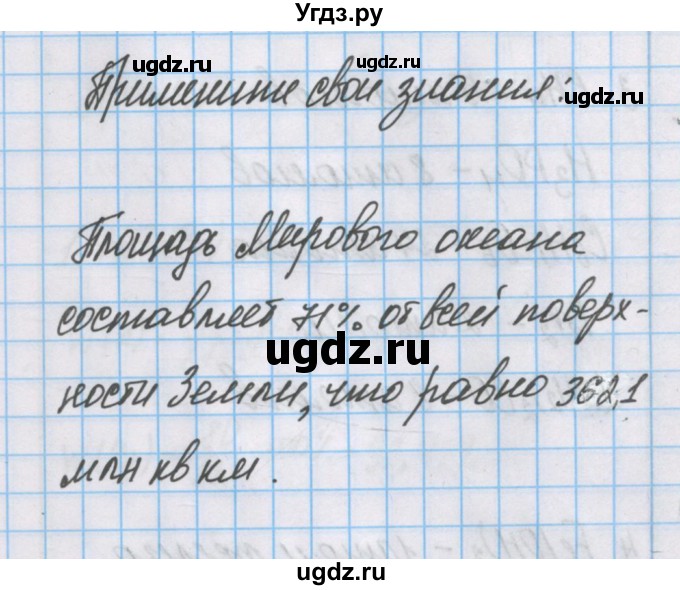 Угдз.ру
ugdz.ru ugdz.ru
Примените свои знания:
Площадь Мирового океана
составляет 71% от всей поверх-
ugdz.ru
ности Земли, что равно 362,1
млн кв км.
ugdz.ru